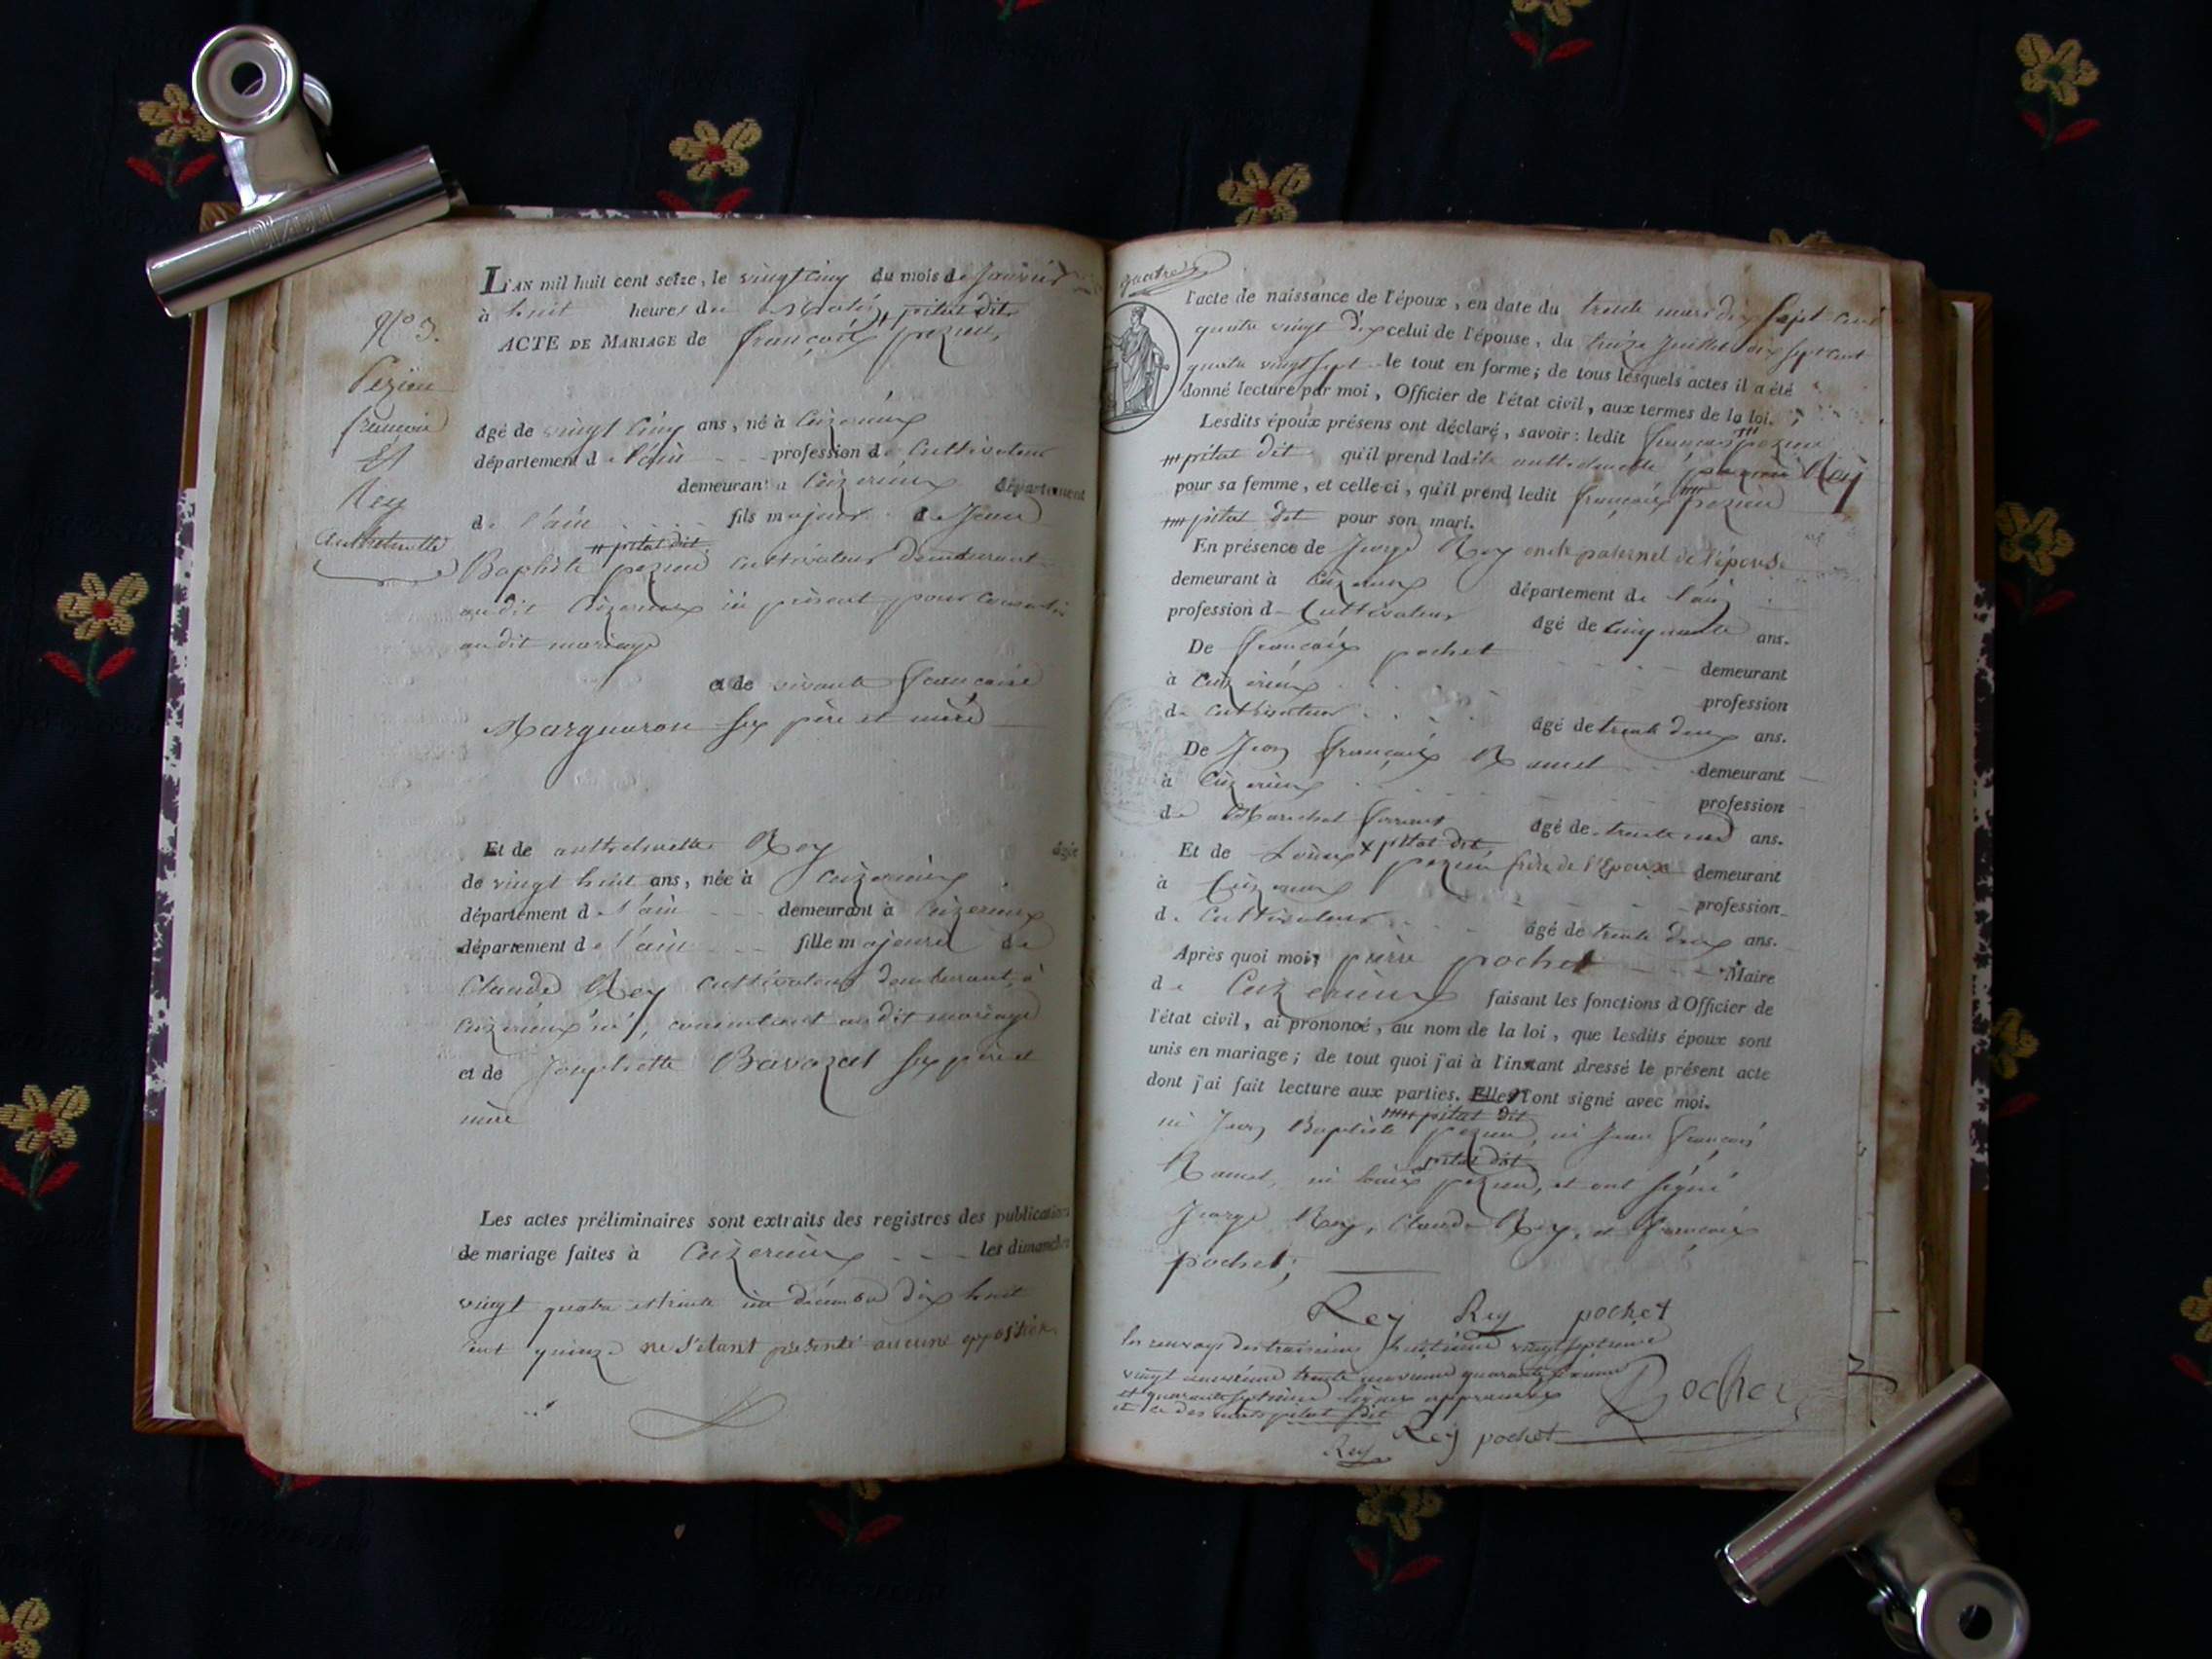 N.° 3.
Pezieu
françois
Et
Rey
Anthelmette
L'AN mil huit cent seize, le vingt cinq du mois de Janvier
à huit heures du Matin, pitat dit
ACTE DE MARIAGE de françois pezieu,
âgé de vingt cinq ans, né à Ceizerieux
département de l'ain profession de Cultivateur
demeurant à Ceizerieux département
de l'ain fils majeur de Jean
pitat dit
Baptiste pezieu cultivateur demeurant
audit Ceizerieux ici présent pour consentir
audit mariage
et de vivante françoise
Margueron ses père et mère
Et de anthelmette Rey âgée
de vingt huit ans, née à Ceizerieux
département de l'ain demeurant à Ceizerieux
département de l'ain fille majeure de
Claude Rey cultivateur demeurant à
Ceizerieux ici, consentant audit mariage
et de Josephette Bavozat ses père et
mère
Les actes préliminaires sont extraits des registres des publications
de mariage faites à Ceizerieux les dimanches
vingt quatre et trente un décembre dix huit
cent quinze ne s'étant présenté aucune opposition.
quatre
l'acte de naissance de l'époux, en date du trente mars dix sept cent
quatre vingt dix celui de l'épouse, du treize Juillet dix sept cent
quatre vingt sept le tout en forme; de tous lesquels actes il a été
donné lecture par moi, Officier de l'état civil, aux termes de la loi.
Lesdits époux présens ont déclaré, savoir: ledit françois pezieu
pitat dit qu'il prend ladite anthelmette Rey
pour sa femme, et celle-ci, qu'il prend ledit françois pezieu
pitat dit pour son mari.
En présence de George Rey oncle paternel de l'épouse
demeurant à Ceizerieux département de l'ain
profession de Cultivateur âgé de cinquante ans.
De françois pochet demeurant
à Ceizerieux profession
de cultivateur âgé de trente deux ans.
De Jean françois Ramel demeurant
à Ceizerieux profession
de Marechal ferrant âgé de trente ans.
x pitat dit
Et de Louis pezieu frère de l'Epoux demeurant
à Ceizerieux profession
de Cultivateur âgé de trente deux ans.
Après quoi moi, pierre pochet Maire
de Ceizerieux faisant les fonctions d'Officier de
l'état civil, ai prononcé, au nom de la loi, que lesdits époux sont
unis en mariage; de tout quoi j'ai à l'instant dressé le présent acte
dont j'ai fait lecture aux parties. Elles n'ont signé avec moi.
pitat dit
ni Jean Baptiste pezieu, ni Jean françois
pitat dit
Ramel, ni louis pezieu, et ont signé
George Rey, Claude Rey, et françois
pochet;
Rey Rey pochet
les renvoys des troisième huitième vingt septième
vingt neuvième trente neuvième quarante sixième
et quarante septième lignes approuvés
et ce des mots pitat dit
Pochet
Rey pochet
Rey